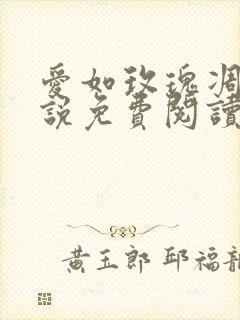 愛如玫瑰凋
說免費閱讀
黃玉郎 邱福龍